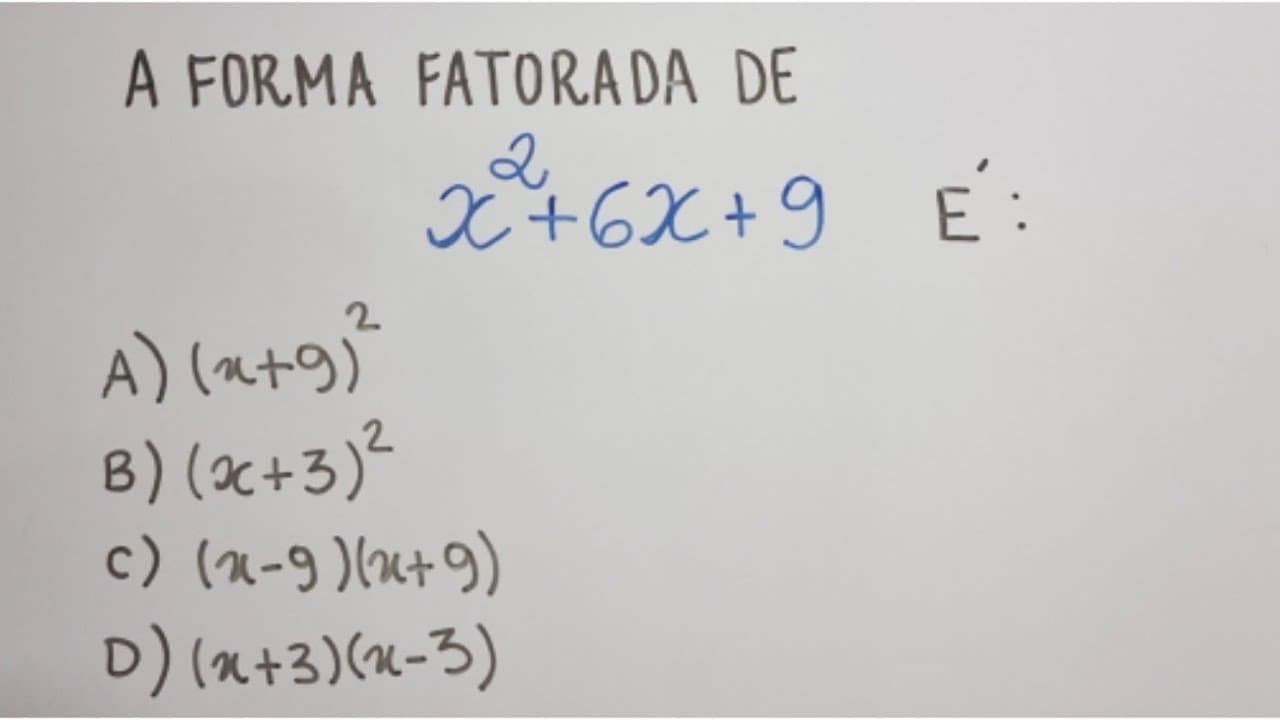 A FORMA FATORADA DE
x²+6x+9 É:
A) (x+9)²
B) (x+3)²
C) (x-9)(x+9)
D) (x+3)(x-3)